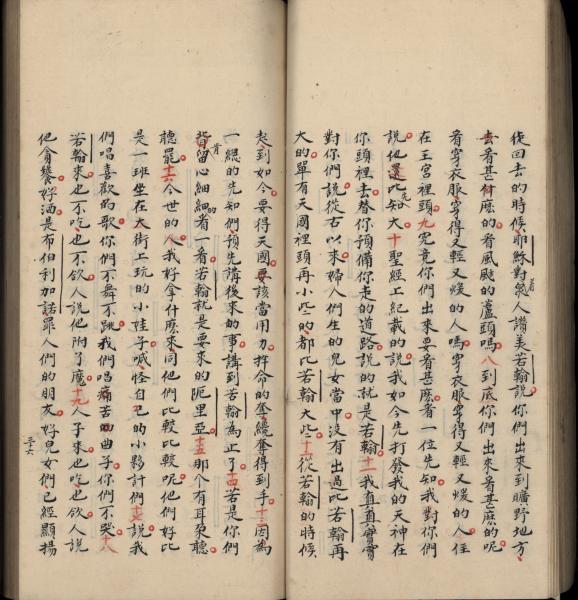 後回去的時候耶穌對着衆人讚美若翰說你們出來到曠野地方
去看甚什麽的看風颳的蘆頭嗎八到底你們出來看甚麽的呢
看穿衣服穿得又輕又煖的人嗎穿衣服穿得又輕又煖的人住
在王宮裡頭九究竟你們出來要看甚麽看一位先知我對你們
說他還比先知大十聖經上紀載的說我如今先打發我的天神在
你頭裡去替你預備你走的道路說的就是若翰十一我真真實實
對你們說從古以來婦人們生的兒女當中沒有出過比若翰再
大的單有天國裡頭再小些的都比若翰大些十二從若翰的時候
起到如今要得天國要該當用力拚命的奪纔奪得到手十三因為
一總的先知們預先講後來的事講到若翰為止了十四若是你們
肯留心細細的看一看若翰就是要來的阨里亞十五那个有耳朶聽
聽罷十六今世的人我好拿什麽來同他們比較比較呢他們好比
是一班坐在大街上玩的小娃子喊怪自己的小夥計們十七說我
們唱喜歡的歌你們不舞不跳我們唱痛苦的曲子你們不哭十八
若翰來也不吃也不欲人說他附了魔十九人子來也吃也欲人說
他貪饕好酒是布伯利加諾罪人們的朋友好兒女們已經顯揚
三十六